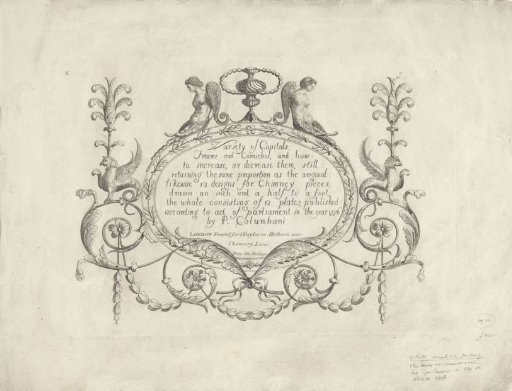 Variety of Capitals,
Friezes and Corniches, and how
to increase, or decrease them, still
retaining the same proportion as the original
likewise 12 designs for Chimney pieces,
drawn an inch and a half to a foot,
the whole consisting of 12 plates published
according to act of parliament in the year
by P. Columbani
LONDON Printed for I. Taylor in Holborn near
Chancery Lane.